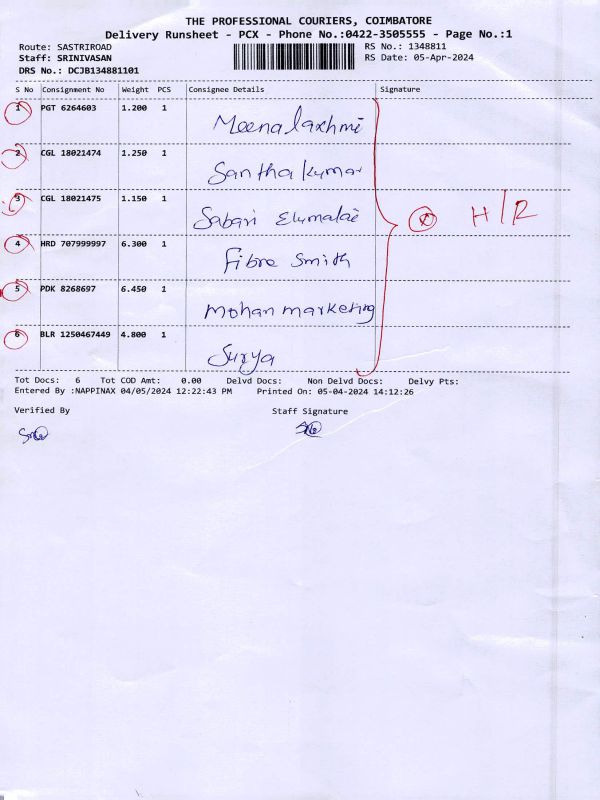 THE PROFESSIONAL COURIERS, COIMBATORE
Delivery Runsheet - PCX - Phone No.:0422-3505555 - Page No.:1
Route: SASTRIROAD RS No.: 1348811
Staff: SRINIVASAN RS Date: 05-Apr-2024
DRS No.: DCJB134881101
S No Consignment No Weight PCS Consignee Details Signature
1 PGT 6264603 1.200 1
Meenalaxhmi
2 CGL 18021474 1.250 1
Santhakumar
3 CGL 18021475 1.150 1
Sabari Elumalai H/R
4 HRD 707999997 6.300 1
Fibre Smith
5 PDK 8268697 6.450 1
Mohan marketing
6 BLR 1250467449 4.800 1
Surya
Tot Docs: 6 Tot COD Amt: 0.00 Delvd Docs: Non Delvd Docs: Delvy Pts:
Entered By :NAPPINAX 04/05/2024 12:22:43 PM Printed On: 05-04-2024 14:12:26
Verified By Staff Signature